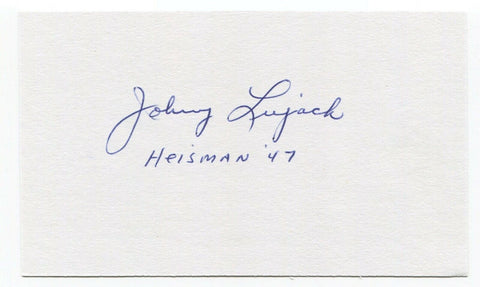 Johnny Lujack
HEISMAN '47